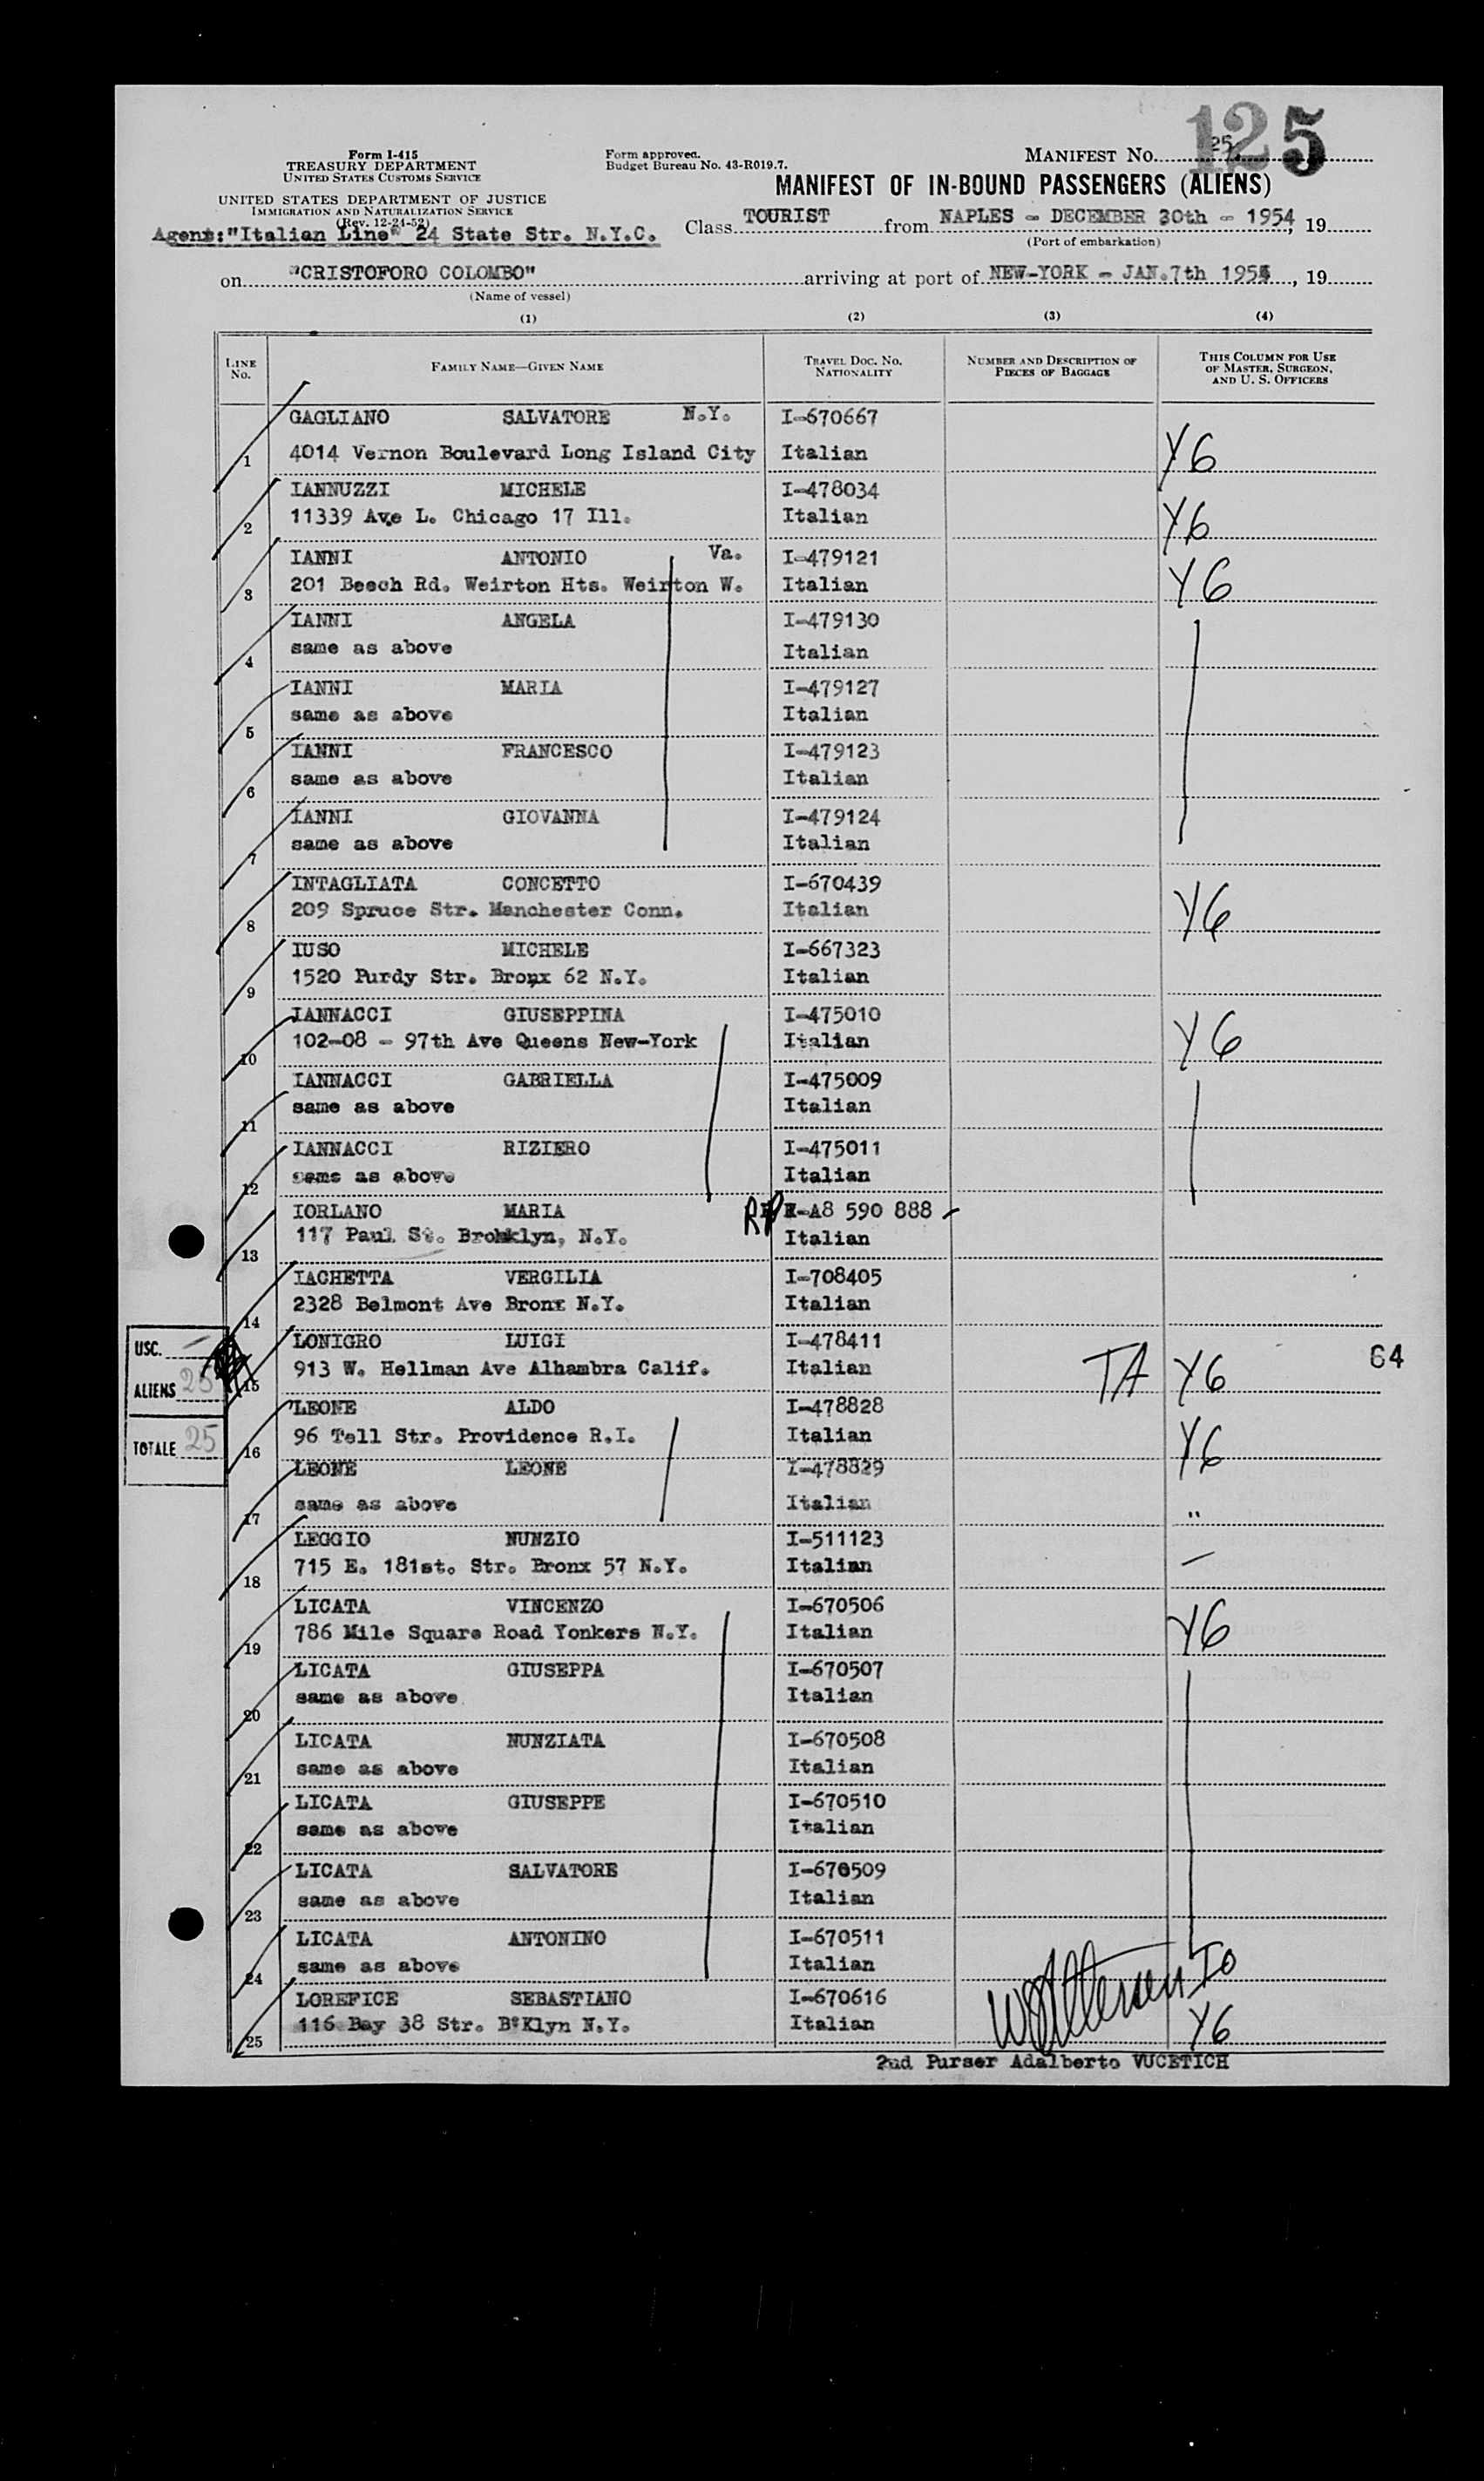 125
Form I-415
TREASURY DEPARTMENT
UNITED STATES CUSTOMS SERVICE
UNITED STATES DEPARTMENT OF JUSTICE
IMMIGRATION AND NATURALIZATION SERVICE
(Rev. 12-24-52)
Agent:"Italian Line" 24 State Str. N.Y.C.
Form approved.
Budget Bureau No. 43-R019.7.
MANIFEST NO. 25
MANIFEST OF IN-BOUND PASSENGERS (ALIENS)
Class TOURIST from NAPLES - DECEMBER 30th - 1954, 19
(Port of embarkation)
on "CRISTOFORO COLOMBO" arriving at port of NEW-YORK - JAN.7th 195, 19
(Name of vessel)
(1) (2) (3) (4)
LINE NO. FAMILY NAME—GIVEN NAME TRAVEL DOC. NO. NATIONALITY NUMBER AND DESCRIPTION OF PIECES OF BAGGAGE THIS COLUMN FOR USE OF MASTER, SURGEON, AND U. S. OFFICERS
GAGLIANO SALVATORE N.Y. I-670667
1 4014 Vernon Boulevard Long Island City Italian Y6
IANNUZZI MICHELE I-478034
2 11339 Ave L. Chicago 17 Ill. Italian Y6
IANNI ANTONIO Va. I-479121
3 201 Beech Rd. Weirton Hts. Weirton W. Italian Y6
IANNI ANGELA I-479130
4 same as above Italian
IANNI MARIA I-479127
5 same as above Italian
IANNI FRANCESCO I-479123
6 same as above Italian
IANNI GIOVANNA I-479124
7 same as above Italian
INTAGLIATA CONCETTO I-670439
8 209 Spruce Str. Manchester Conn. Italian Y6
IUSO MICHELE I-667323
9 1520 Purdy Str. Bronx 62 N.Y. Italian
IANNACCI GIUSEPPINA I-475010
10 102-08 - 97th Ave Queens New-York Italian Y6
IANNACCI GABRIELLA I-475009
11 same as above Italian
IANNACCI RIZIERO I-475011
12 same as above Italian
IORLANO MARIA RP A8 590 888
13 117 Paul St. Brooklyn, N.Y. Italian
IACHETTA VERGILIA I-708405
14 2328 Belmont Ave Bronx N.Y. Italian
LONIGRO LUIGI I-478411
15 913 W. Hellman Ave Alhambra Calif. Italian TA Y6
64
LEONE ALDO I-478828
16 96 Tell Str. Providence R.I. Italian Y6
LEONE LEONE I-478829
17 same as above Italian "
LEGGIO NUNZIO I-511123
18 715 E. 181st. Str. Bronx 57 N.Y. Italian —
LICATA VINCENZO I-670506
19 786 Mile Square Road Yonkers N.Y. Italian Y6
LICATA GIUSEPPA I-670507
20 same as above Italian
LICATA NUNZIATA I-670508
21 same as above Italian
LICATA GIUSEPPE I-670510
22 same as above Italian
LICATA SALVATORE I-670509
23 same as above Italian
LICATA ANTONINO I-670511
24 same as above Italian
LOREFICE SEBASTIANO I-670616
25 116 Bay 38 Str. B'Klyn N.Y. Italian Y6
2nd Purser Adalberto VUCETICH
USC. —
ALIENS 25
TOTALE 25